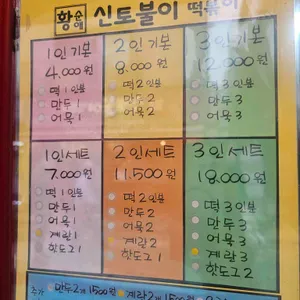 황순애 신토불이 떡볶이
1인기본 2인기본 3인기본
4.000원 8.000원 12.000원
떡1인분 떡2인분 떡3인분
만두1 만두2 만두3
어묵1 어묵2 어묵3
1인세트 2인세트 3인세트
7.000원 11.500원 18.000원
떡1인분 떡2인분 떡3인분
만두1 만두2 만두3
어묵1 어묵2 어묵3
계란1 계란2 계란3
핫도그1 핫도그1 핫도그2
추가 만두2개 1500원 계란2개 1500원